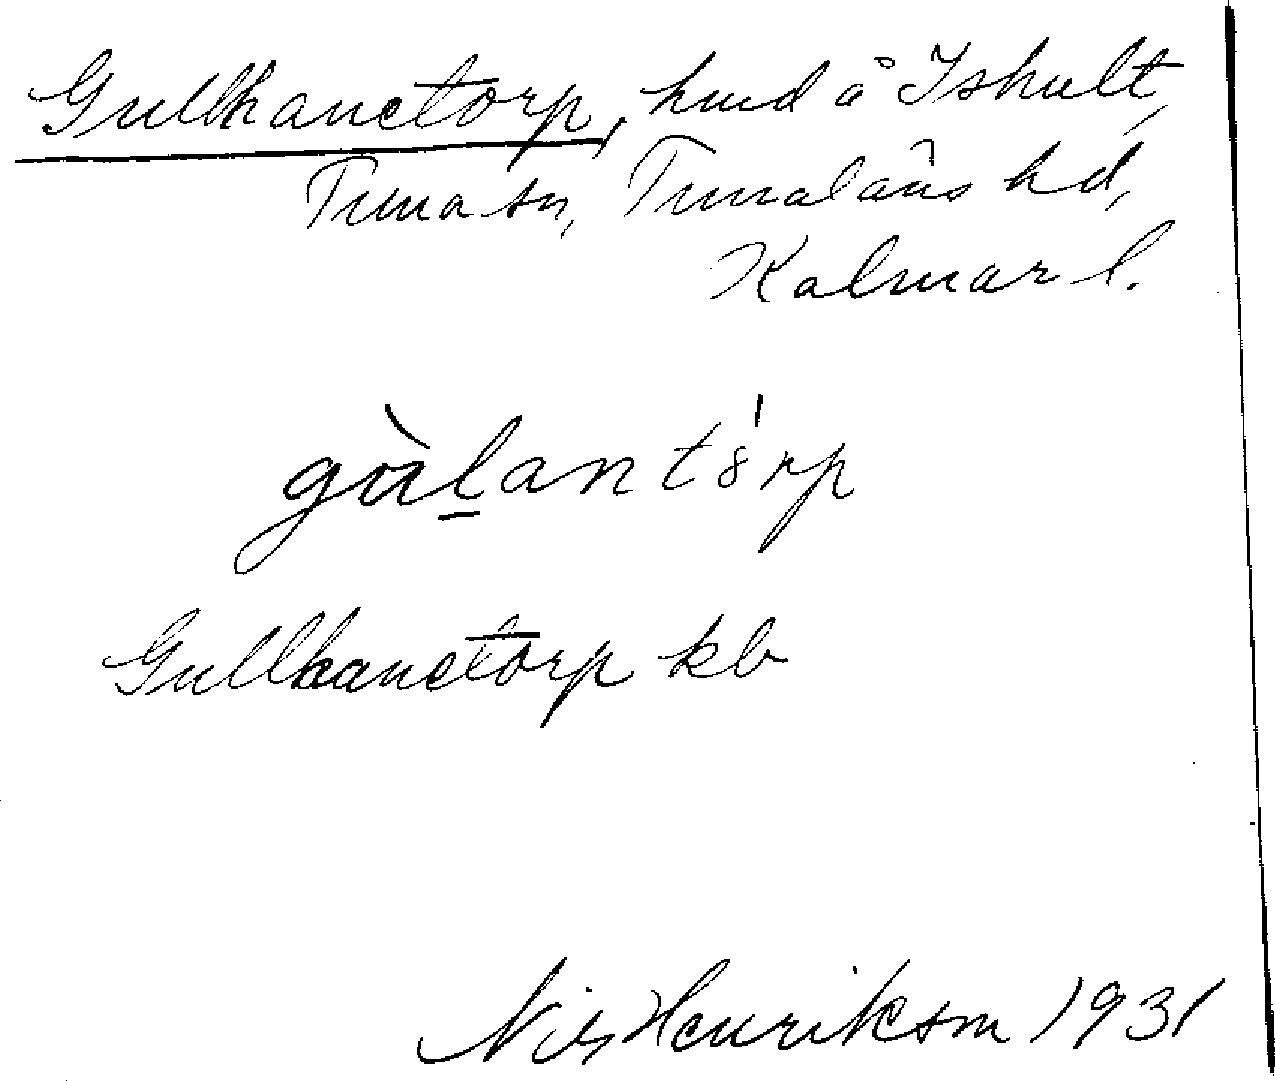 Gullhanetorp, hmd å Ishult,
Tuna sn, Tunaläns hd,
Kalmar l.
gòlantórp
Gullhanetorp kb
Nils Henrikson 1931